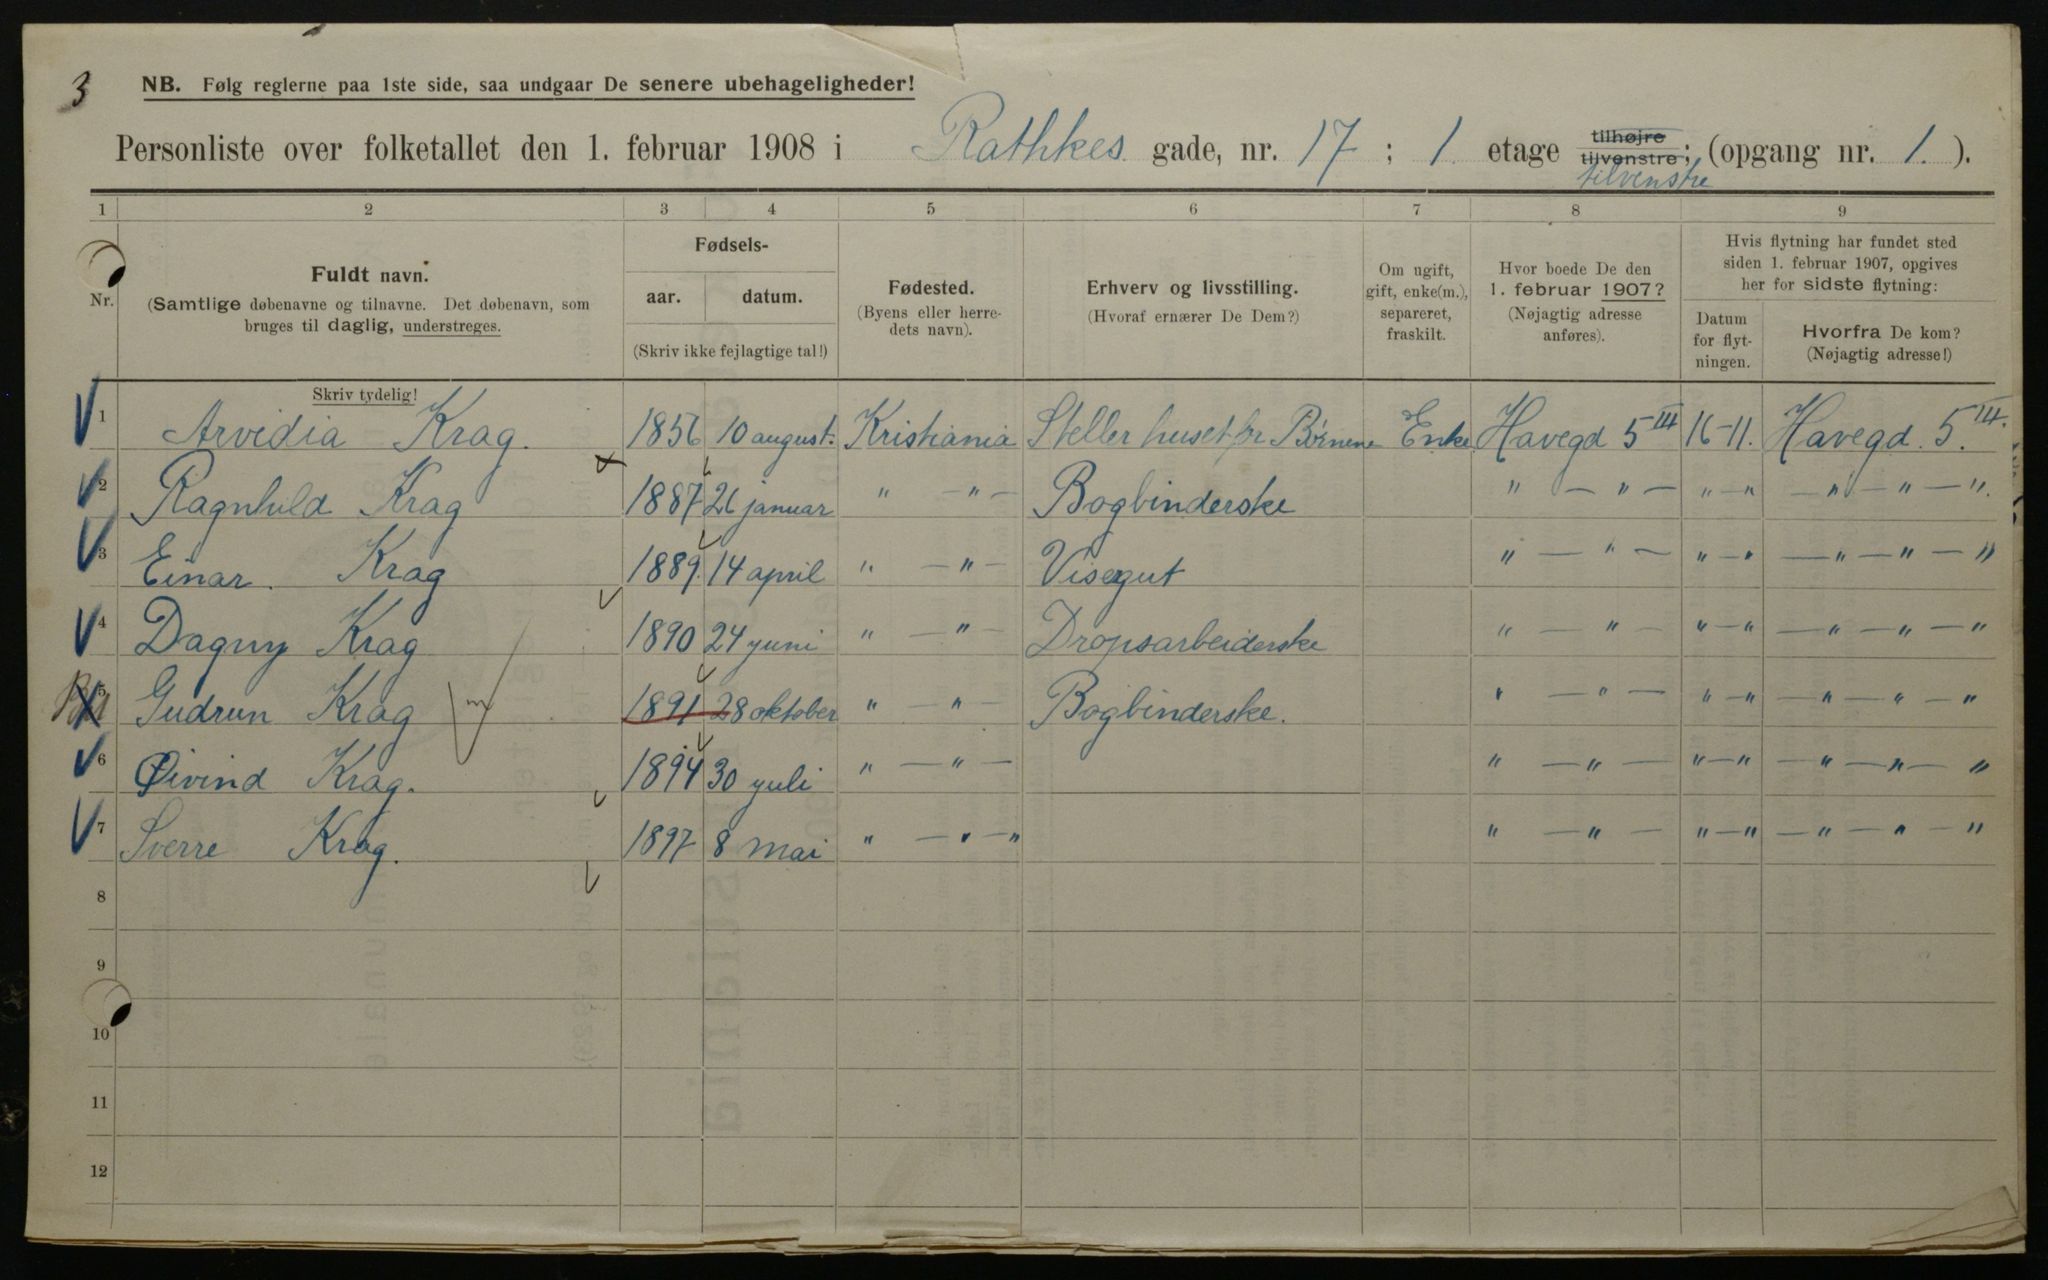 3
NB. Følg reglerne paa 1ste side, saa undgaar De senere ubehageligheder!
Personliste over folketallet den 1. februar 1908 i Rathkes gade, nr. 17 ; 1 etage tilhøjre tilvenstre; (opgang nr. 1. ).
tilvenstre
1 2 3 4 5 6 7 8 9
Nr.
Fuldt navn.
(Samtlige døbenavne og tilnavne. Det døbenavn, som
bruges til daglig, understreges.
Skriv tydelig!
Fødsels-
aar. datum.
(Skriv ikke fejlagtige tal!)
Fødested.
(Byens eller herre-
dets navn).
Erhverv og livsstilling.
(Hvoraf ernærer De Dem?)
Om ugift,
gift, enke(m.),
separeret,
fraskilt.
Hvor boede De den
1. februar 1907?
(Nøjagtig adresse
anføres).
Hvis flytning har fundet sted
siden 1. februar 1907, opgives
her for sidste flytning:
Datum
for flyt-
ningen.
Hvorfra De kom?
(Nøjagtig adresse!)
1 Arvidia Krag. 1856 10 august. Kristiania Steller huset for Børnene Enke Havegd 5 III 16-11. Havegd. 5. III.
2 Ragnhild Krag 1887 26 januar " — " — Bogbinderske " — " — " — " — " — " — ".
3 Einar. Krag 1889. 14 april " — " — Visergut " — " — " — " — " — " — "
4 Dagny Krag 1890 24 juni " — " — Dropsarbeiderske " — " — " — " — " — " — "
5 Gudrun Krag 1891 28 oktober " — " — Bogbinderske. " — " — " — " — " — " — "
6 Øivind Krag. 1894 30 juli " — " — " — " — " — " — " — " — "
7 Sverre Krag. 1897 8 mai " — " — " " — " — " — " — " — " — "
8
9
10
11
12